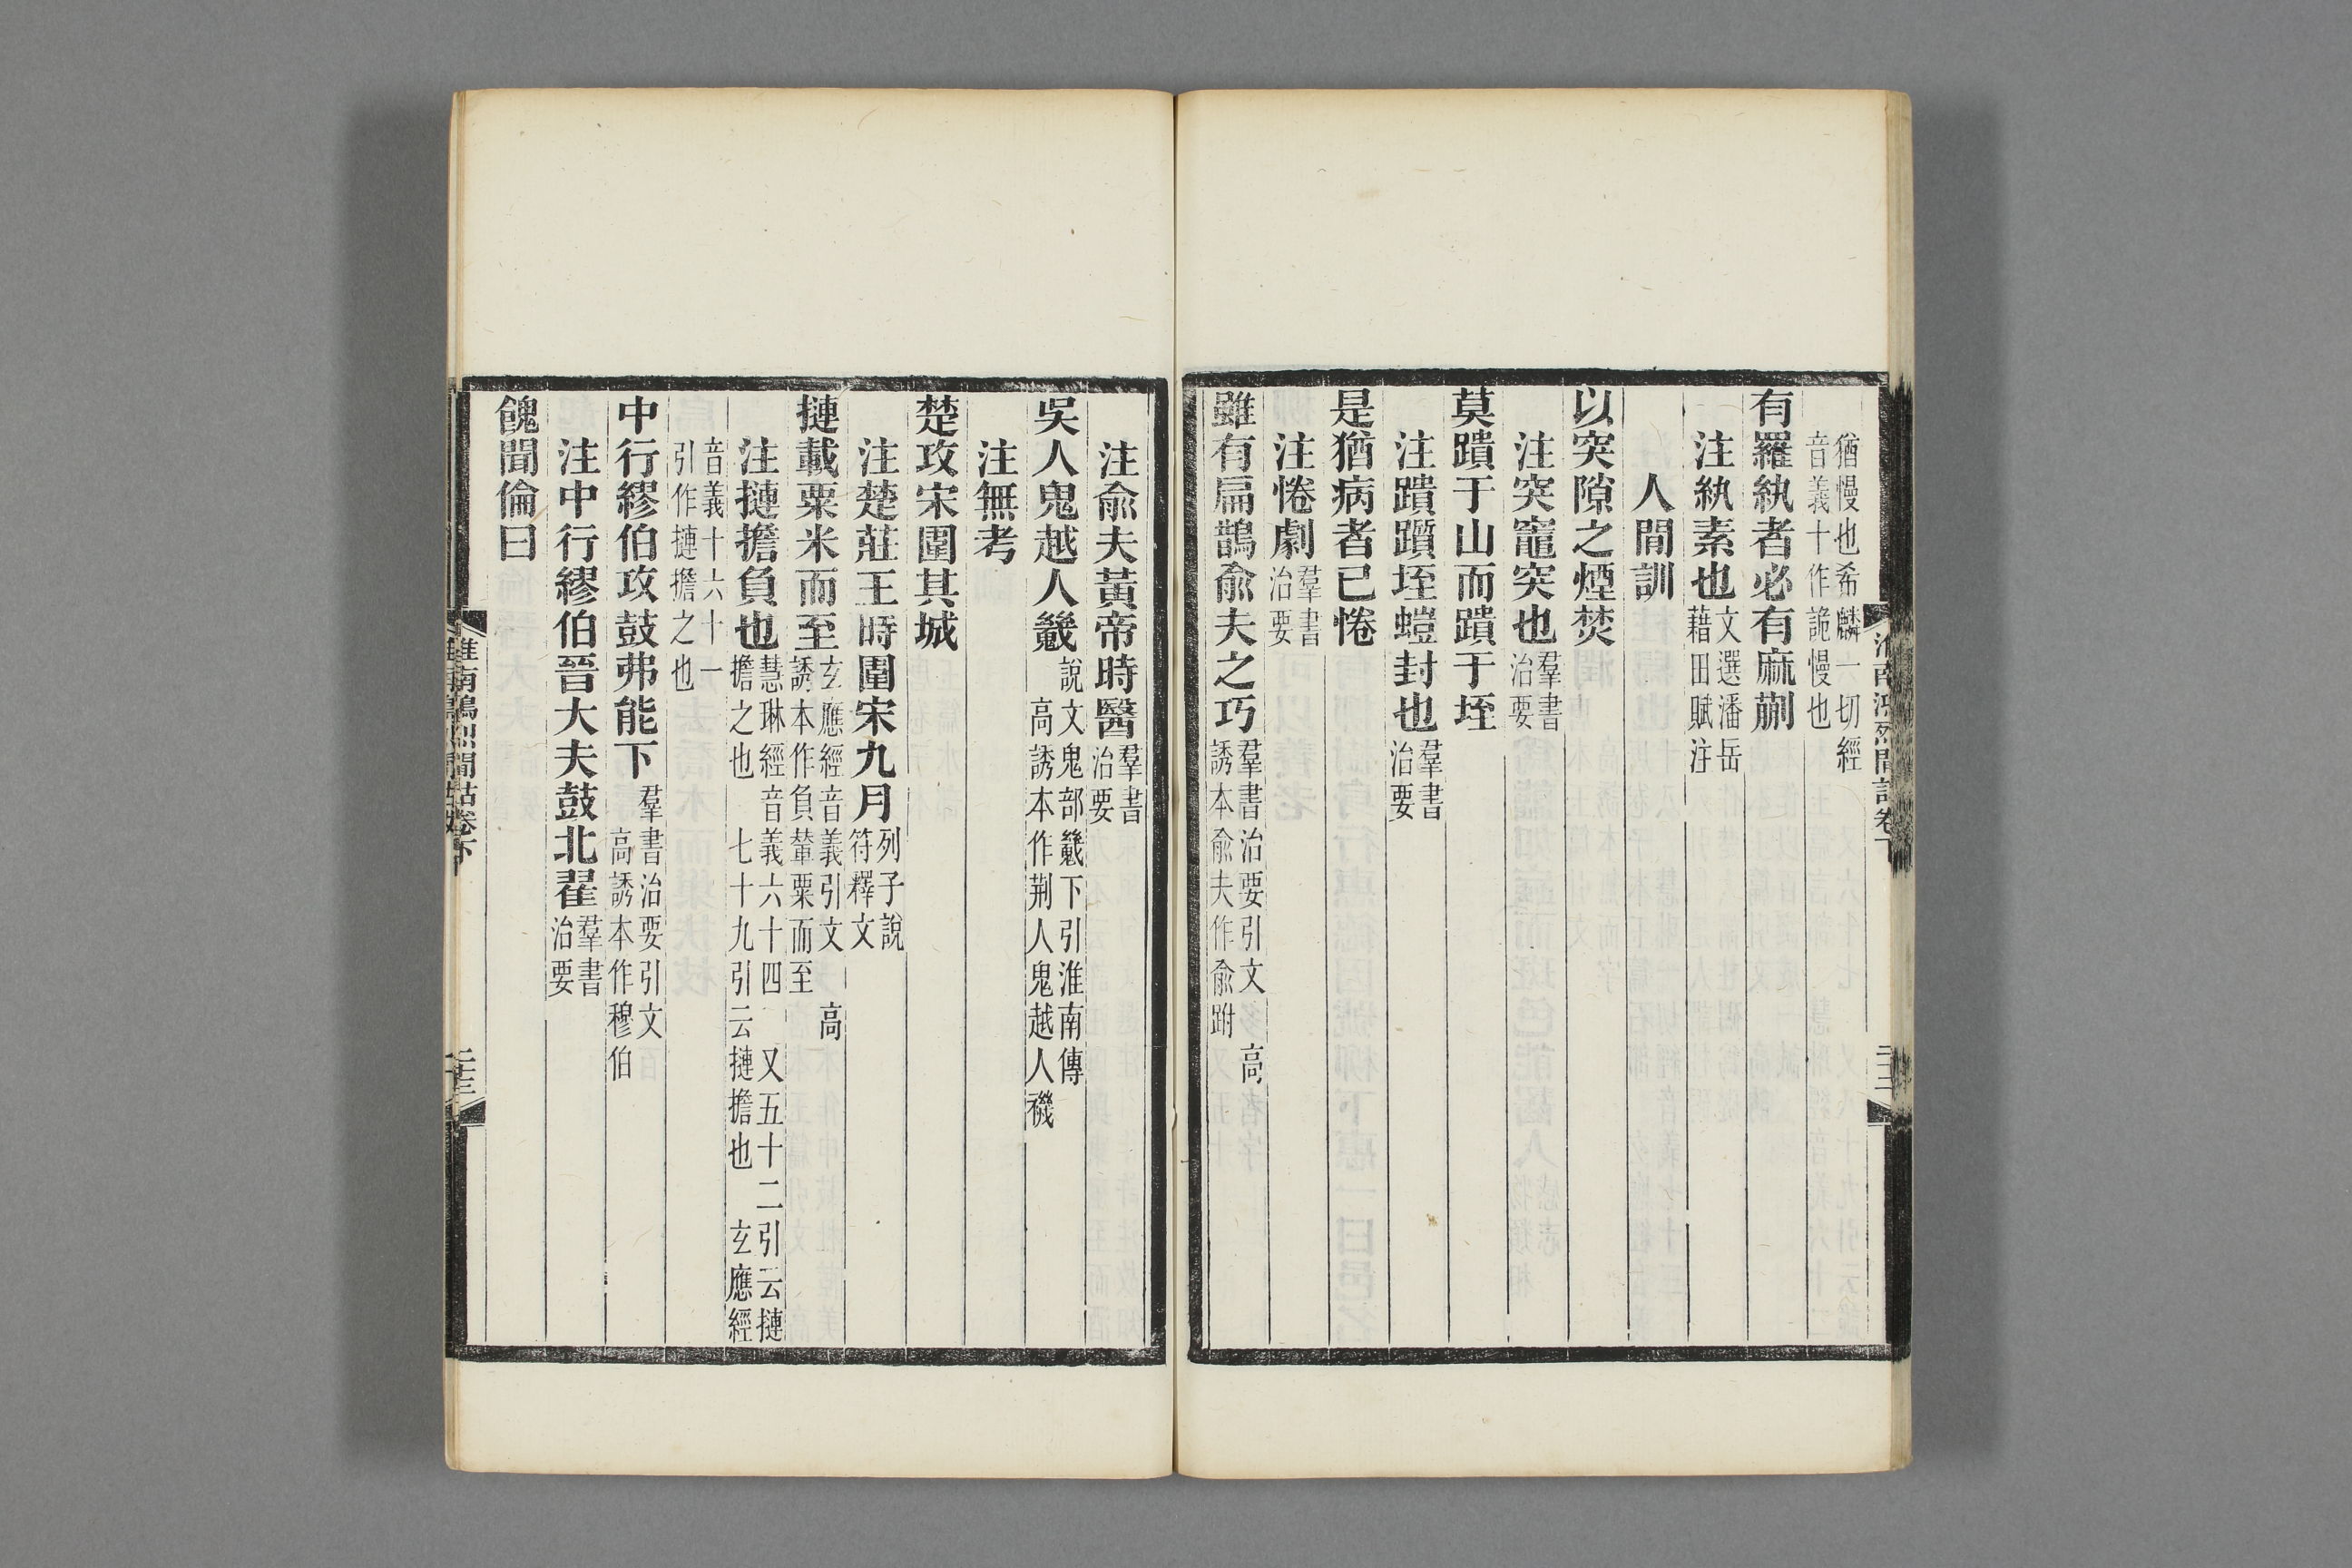 猶慢也希麟一切經
音義十作詭慢也
有羅紈者必有麻蒯
注紈素也文選潘岳
藉田賦注
人閒訓
以突隙之煙焚
注突竈突也羣書
治要
莫蹪于山而蹪于垤
注蹪躓垤螘封也羣書
治要
是猶病者已惓
注惓劇羣書
治要
雖有扁鵲俞夫之巧羣書治要引文 高
誘本俞夫作俞跗
注俞夫黃帝時醫羣書
治要
吳人鬼越人𩴆說文鬼部𩴆下引淮南傳
高誘本作荆人鬼越人禨
注無考
楚攻宋圍其城
注楚莊王時圍宋九月列子說
符釋文
摙載粟米而至玄應經音義引文 高
誘本作負輦粟而至
注摙擔負也慧琳經音義六十四 又五十二引云摙
擔之也 七十九引云摙擔也 玄應經
音義十六十一
引作摙擔之也
中行繆伯攻鼓弗能下羣書治要引文
高誘本作穆伯
注中行繆伯晉大夫鼓北翟羣書
治要
餽聞倫曰
淮南鴻烈閒詁卷下
二十三